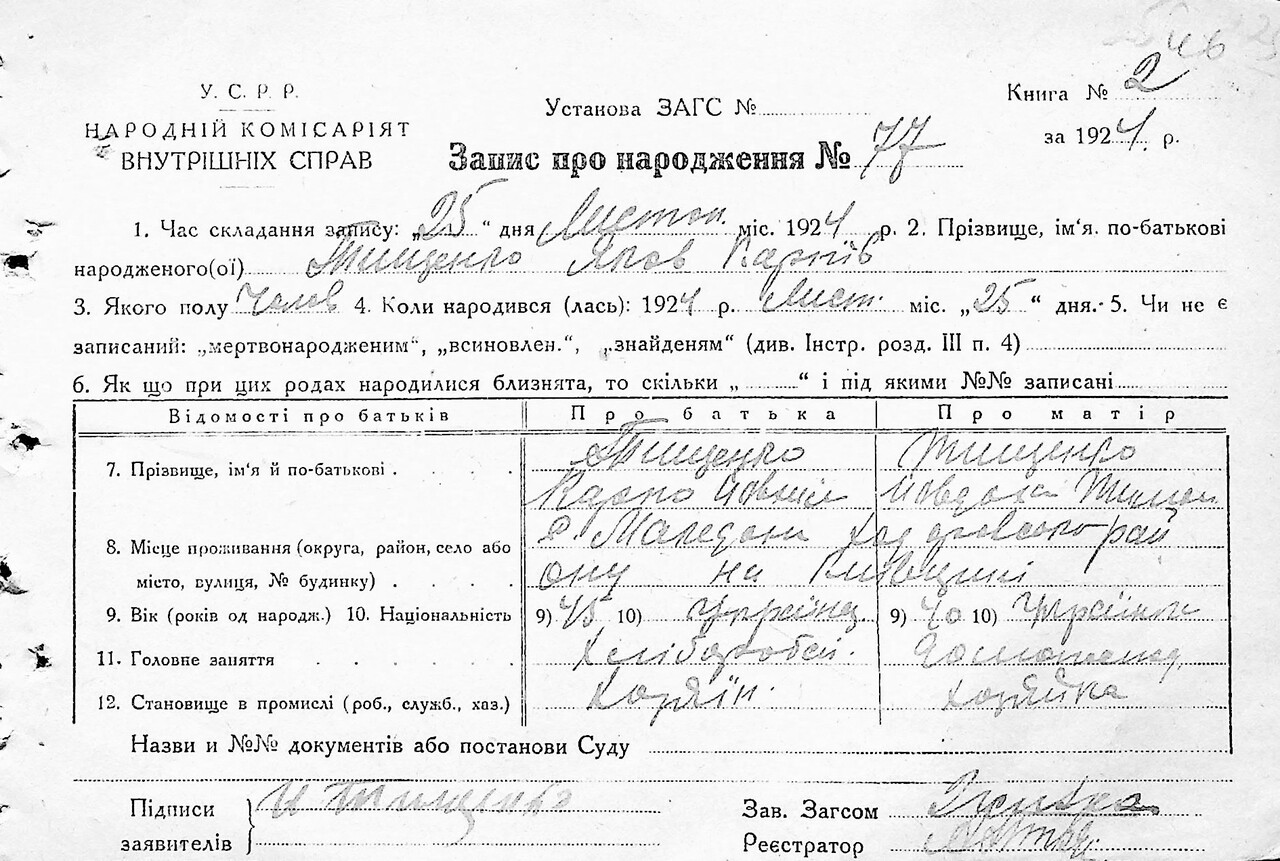 46
У. С. Р. Р.
НАРОДНІЙ КОМІСАРІЯТ
ВНУТРІШНІХ СПРАВ
Установа ЗАГС №
Книга № 2
за 1924 р.
Запис про народження № 77
1. Час складання запису: „25“ дня Листоп. міс. 1924 р. 2. Прізвище, ім‘я. по-батькові
народженого(ої) Тищенко Яков Карпів
3. Якого полу Чолов 4. Коли народився (лась): 1924 р. Лист. міс. „25“ дня. 5. Чи не є
записаний: „мертвонародженим“, „всиновлен.“, „знайденям“ (див. Інстр. розд. III п. 4)
6. Як що при цих родах народилися близнята, то скільки „ “ і під якими №№ записані
Відомості про батьків Про батька Про матір
7. Прізвище, ім‘я й по-батькові . . . . Тищенко Тищенко
Карпо
8. Місце проживання (округа, район, село або
місто, вулиця, № будинку) . . . ону на Київщині
9. Вік (років од народж.) 10. Національність 9) 45 10) Українец. 9) 40 10) Українка
11. Головне заняття . . . . . Хлібороб
12. Становище в промислі (роб., служб., хаз.) Хозяїн. Хозяйка
Назви и №№ документів або постанови Суду
Підписи
заявителів
Тищенко
Зав. Загсом
Реєстратор